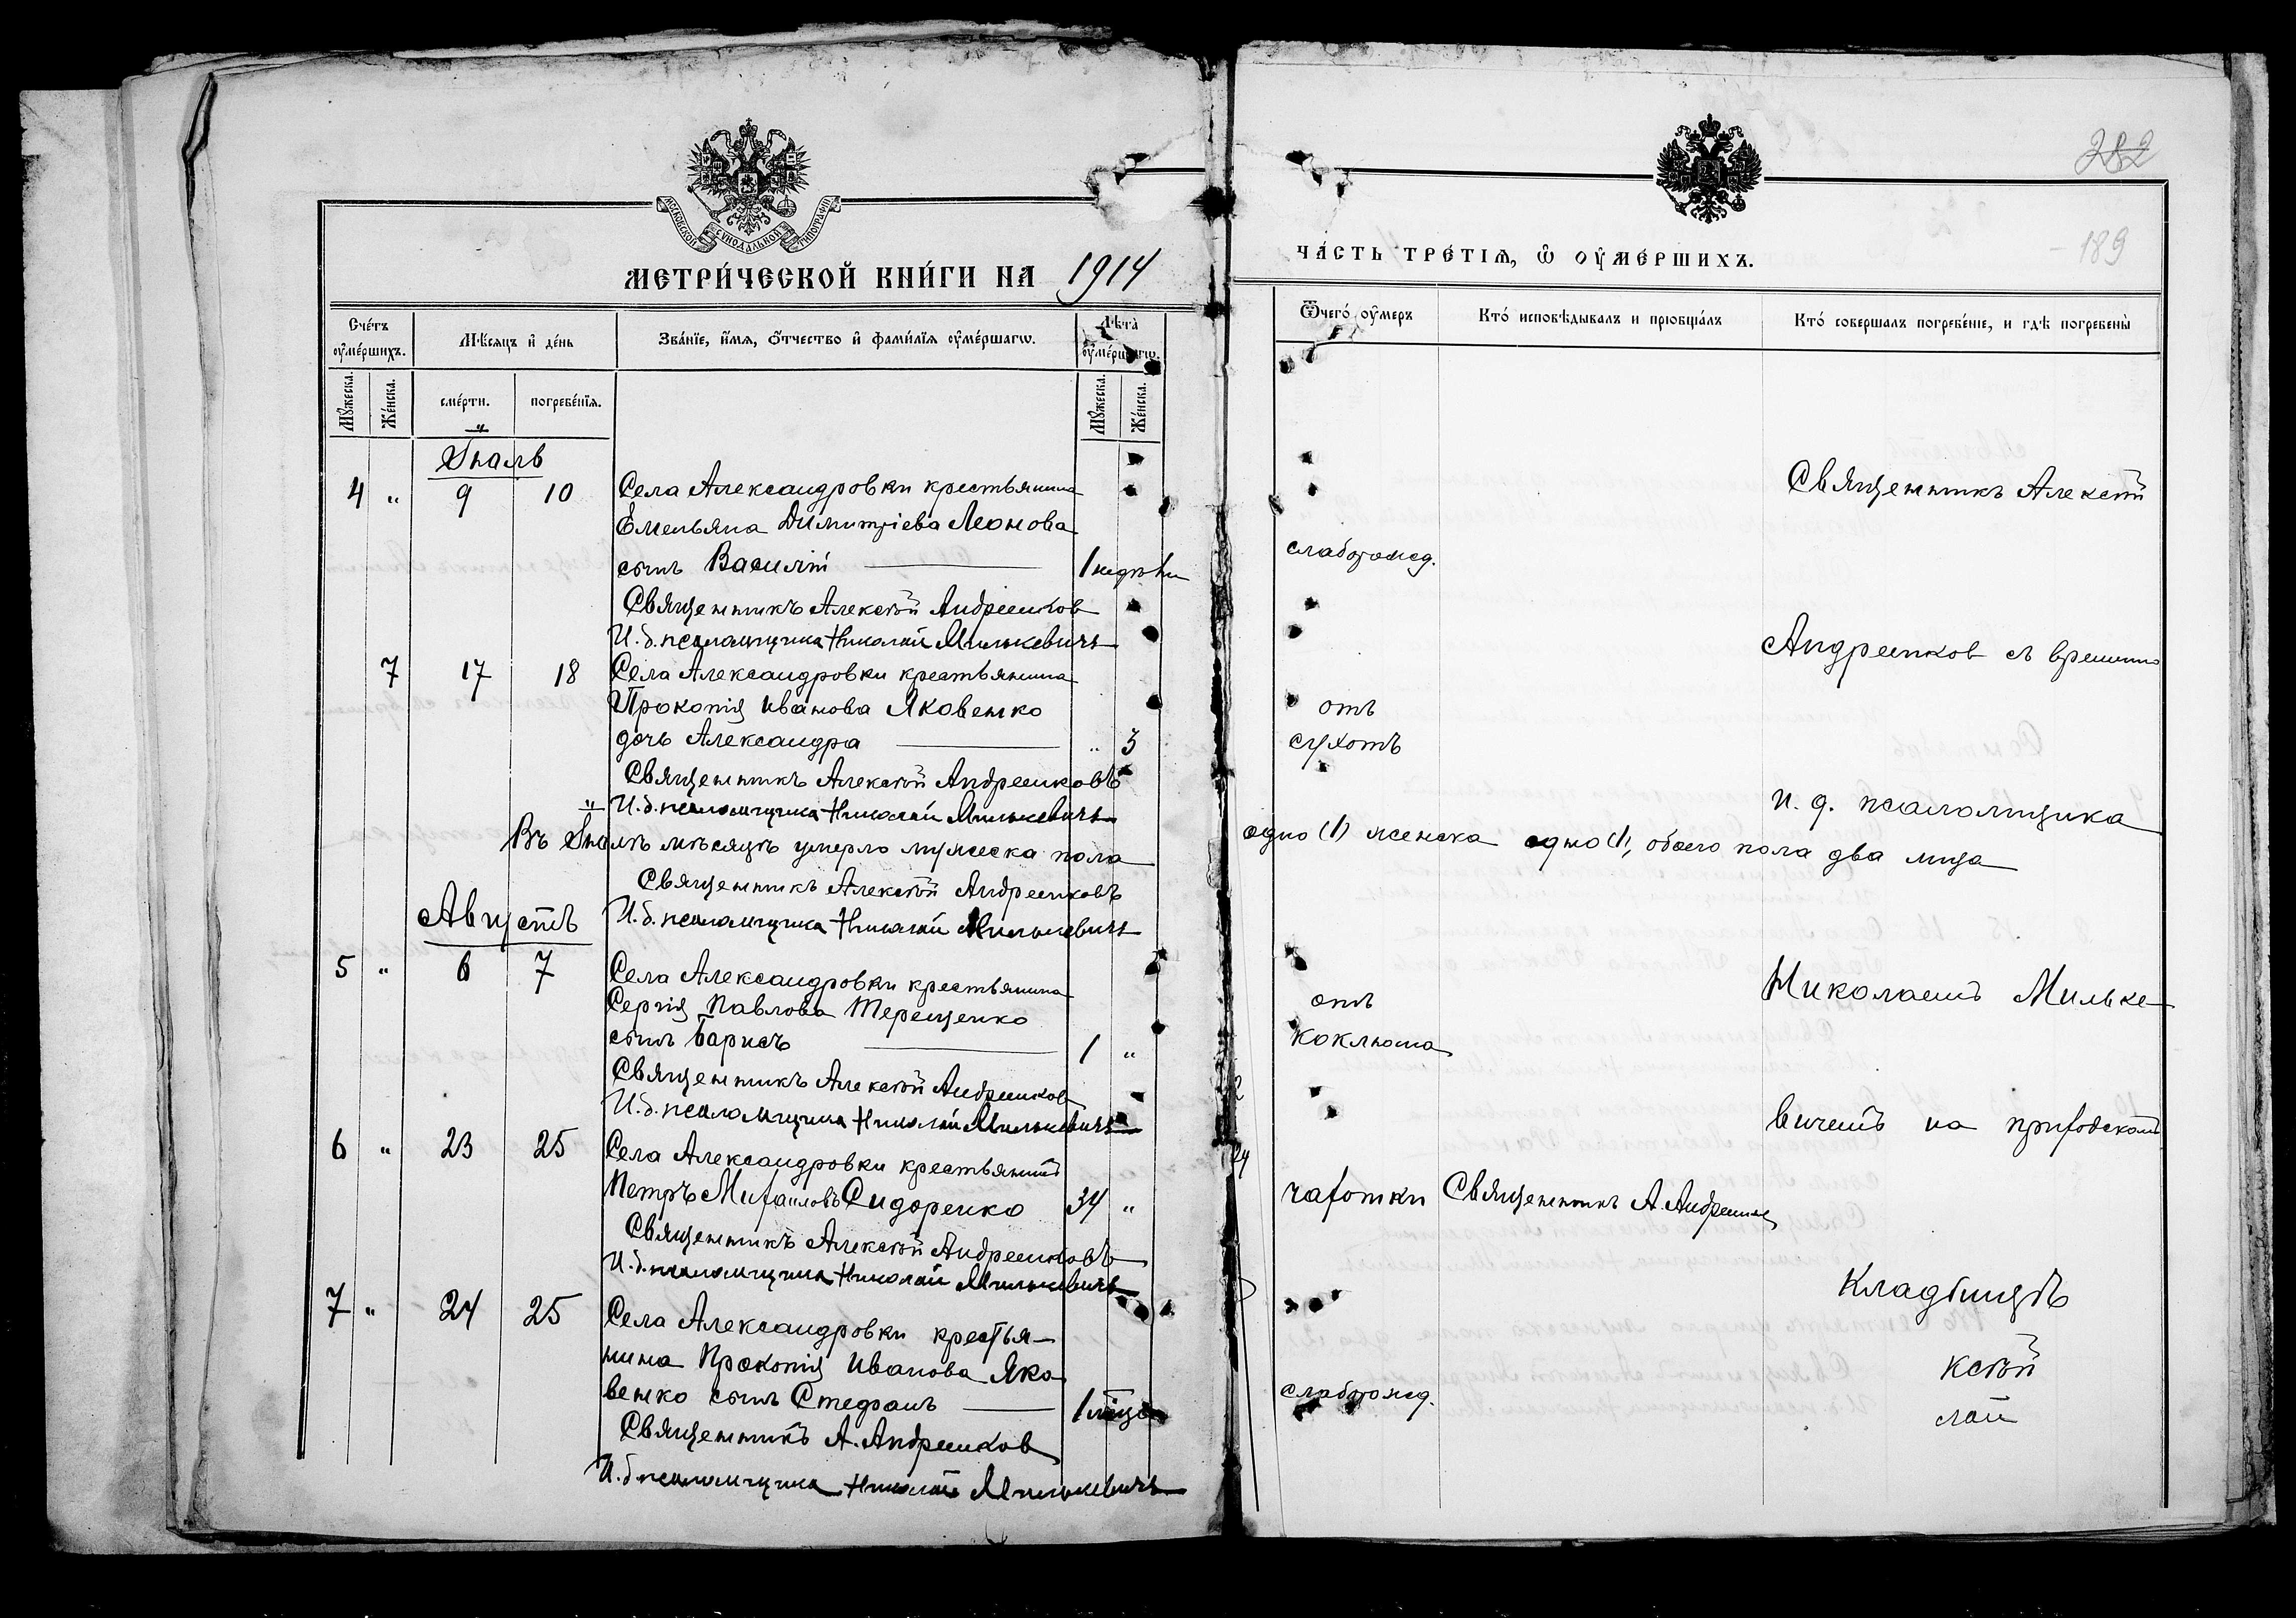 МОСКОВСКОЙ СѴНОДАЛЬНОЙ ТИПОГРАФІИ
МЕТРИ́ЧЕСКОЙ КНИ́ГИ НА 1914
Сче́тъ ѹ҆ме́ршихъ.
Мѣ́сяцъ и҆ де́нь
Зва́нїе, и҆́мя, ѻ҆́тчество и҆ фами́лїя ѹ҆ме́ршагѡ.
Лѣ́та ѹ҆ме́ршагѡ.
Мꙋ́жеска.
Же́нска.
сме́рти.
погребе́нїя.
Мꙋ́жеска.
Же́нска.
Іюль
4 " 9 10 Села Александровки крестьянина
Емельяна Димитріева Леонова
сынъ Василій 1 недѣли
Священникъ Алексѣй Андреенков
И.д. псаломщика Николай Милькевичъ
7 17 18 Села Александровки крестьянина
Прокопія Иванова Яковенко
дочь Александра " 3
Священникъ Алексѣй Андреенковъ
И.д. псаломщика Николай Милькевичъ
Въ Іюлѣ мѣсяцѣ умерло мужеска пола
Священникъ Алексѣй Андреенковъ
И.д. псаломщика Николай Милькевичъ
Августъ
5 " 6 7 Села Александровки крестьянина
Сергія Павлова Терещенко
сынъ Борисъ 1 "
Священникъ Алексѣй Андреенков
И.д. псаломщика Николай Милькевичъ
6 " 23 25 Села Александровки крестьянинъ
Петръ Михаиловъ Сидоренко 34 "
Священникъ Алексѣй Андреенковъ
И.д. псаломщика Николай Милькевичъ
7 " 24 25 Села Александровки крестья-
нина Прокопія Иванова Яко
венко сынъ Стефанъ 1
Священникъ А. Андреенков
И.д. псаломщика Николай Милькевичъ
282
189
ЧА́СТЬ ТРЕ́ТІѦ, Ѽ ОУ҆МЕ́РШИХЪ.
Ѿчегѡ̀ ѹ҆́меръ
Кто́ исповѣ́дывалъ и прїѡбща́лъ
Кто́ соверша́лъ погребе́нїе, и гдѣ̀ погребены̀
Священникъ Алексѣй
слаборожд.
Андреенков съ
отъ
сухотъ
и. д. псаломщика
одно (1) женска одно (1), обоего пола два лица
Николаемъ Мильке-
отъ
коклюша
вичемъ на приходскомъ
чахотки Священникъ А. Андреенков
Кладбищѣ
ксѣй
слаборожд.
лай